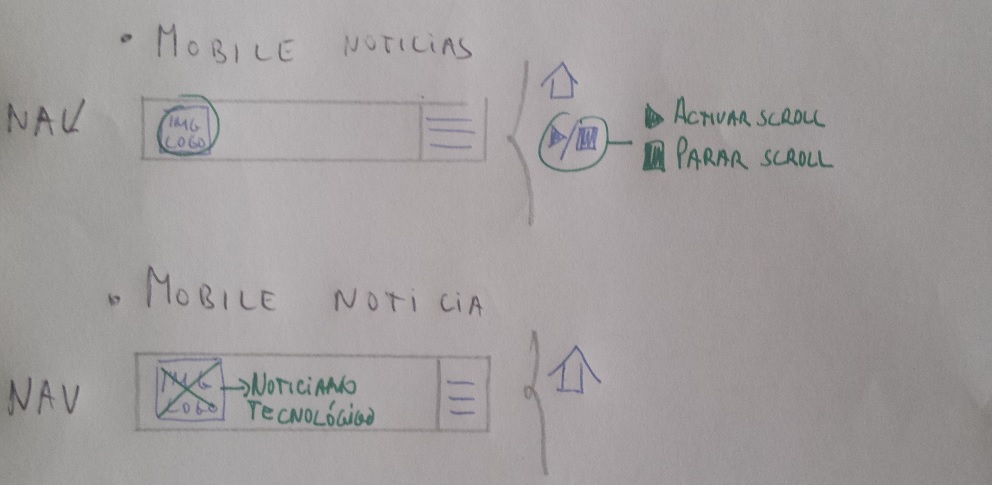 • MOBILE NOTICIAS
NAV
IMG
LOGO
ACTIVAR SCROLL
PARAR SCROLL
• MOBILE NOTICIA
NAV
IMG
LOGO
NOTICIARIO
TECNOLÓGICO